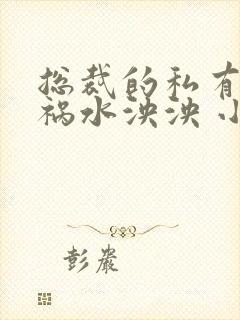 总裁的私有
祸水泱泱 小
彭岩